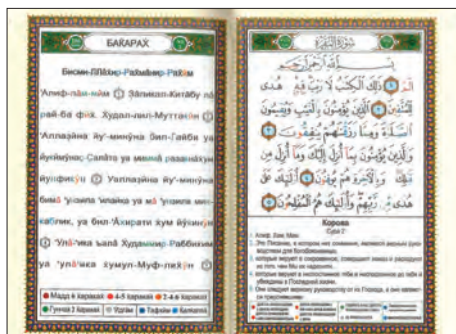 БАКАРАХ
Бисми-ЛЛАхир-РахмАнир-РахИм
'Алиф-лАм-мИм ① ЗАликал-КитАбу лА
рай-ба фИх. Худал-лил-МуттакИн ②
'АллазИна йу'-минУна бил-Гайби уа
йукИмУнас-СалАта уа миммА разакнАхум
йунфикУн ③ УаллазИна йу'-минУна
бимА 'унзила 'илайка уа мА 'унзила мин-
каблик, уа бил-'Ахирати хум йУкинУн
④ 'УлА-'ика ъалА Худаммир-Раббихим
уа 'улА-'ика хумул-Муф-лихУн ⑤
Мадд 6 харакай
4-5 харакай
2-4-6 харакай
Гунна 2 харакай
Идгам
Тафхим
Калкала
سورة البقرة
بسم الله الرحمن الرحيم
الم ① ذلك الكتب لا ريب فيه هدى
للمتقين ② الذين يؤمنون بالغيب ويقيمون
الصلوة ومما رزقنهم ينفقون ③
والذين يؤمنون بما أنزل إليك وما أنزل من
قبلك وبالآخرة هم يوقنون ④ أولئك على
هدى من ربهم وأولئك هم المفلحون ⑤
Корова
Сура 2
1. Алиф. Лам. Мим.
2. Это Писание, в котором нет сомнения, является верным руко-
водством для богобоязненных,
3. которые веруют в сокровенное, совершают намаз и расходуют
из того, чем Мы их наделили,
4. которые веруют в ниспосланное тебе и ниспосланное до тебя и
убеждены в Последней жизни.
5. Они следуют верному руководству от их Господа, и они являют-
ся преуспевшими.